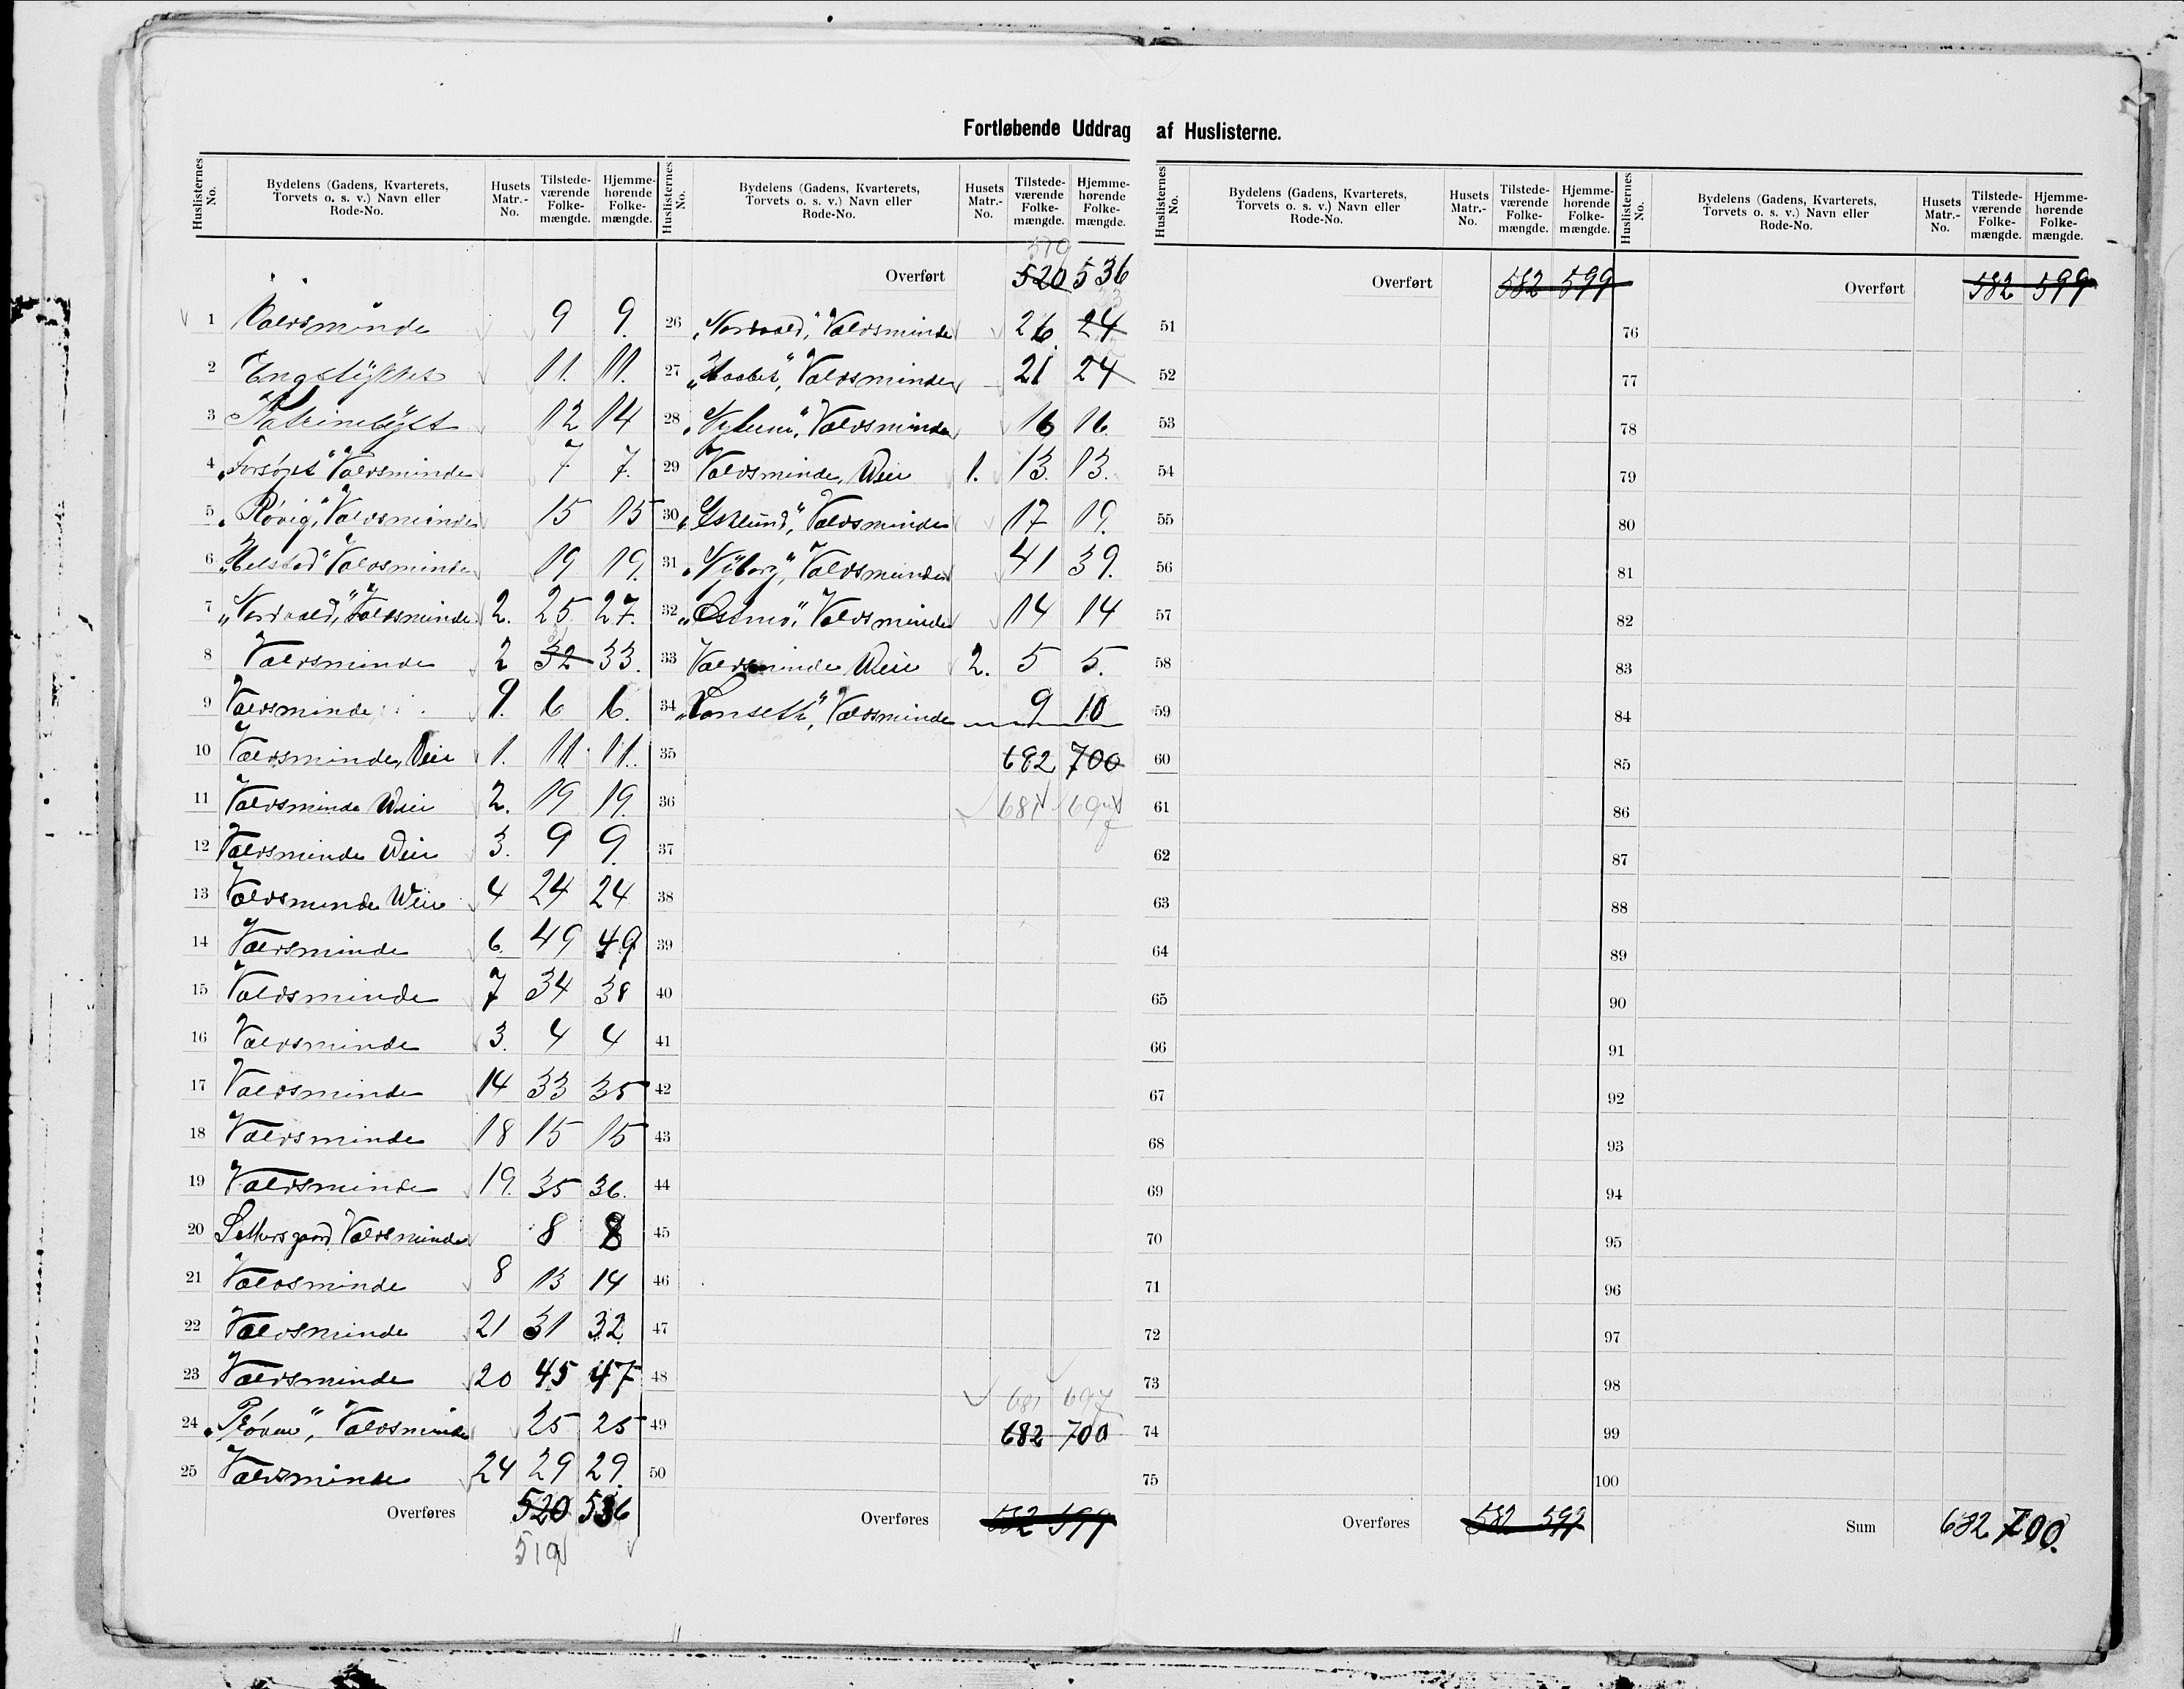 Fortløbende Uddrag af Huslisterne.
Huslisternes No. Bydelens (Gadens, Kvarterets, Torvets o. s. v.) Navn eller Rode-No. Husets Matr.-No. Tilstede-værende Folke-mængde. Hjemme-hørende Folke-mængde.
1 Valdsminde 9 9.
2 Engstykket 11. 11.
3 Katrinelyst 12 14
4 "Forsøget" Valdsminde 7 7.
5 "Røvig", Valdsminde 15 15
6 "Helstad" Valdsminde 19 19.
7 "Nordvald", Valdsminde 2. 25 27.
8 Valdsminde 2 32 33.
9 Valdsminde 9. 6 6.
10 Valdsminde, Veii 1. 11. 11.
11 Valdsminde Weii 2. 19 19.
12 Valdsminde Weii 3. 9 9.
13 Valdsminde Weii 4 24 24
14 Valdsminde 6. 49 49
15 Valdsminde 7 34 38
16 Valdsminde 3. 4 4
17 Valdsminde 14 33 35
18 Valdsminde 18 15 15
19 Valdsminde 19. 35 36.
20 Valdsminde 8 8
21 Valdsminde 8 13 14
22 Valdsminde 21 31 32
23 Valdsminde 20 45 47
24 Valdsminde 25 25
25 Valdsminde 24 29 29.
Overføres 520 536
519
Huslisternes No. Bydelens (Gadens, Kvarterets, Torvets o. s. v.) Navn eller Rode-No. Husets Matr.-No. Tilstede-værende Folke-mængde. Hjemme-hørende Folke-mængde.
519
Overført 520 536
26 "Nordvald", Valdsminde 26. 24
27 "Haabet", Valdsminde 21 24
28 Valdsminde 16 16.
29 Valdsminde, Weii 1. 13. 13.
30 "Eklund", Valdsminde 17 19.
31 "Nyborg", Valdsminde 41 39.
32 "Østmo", Valdsminde 14 14
33 Valdsminde Weii 2. 5 5.
34 Valdsminde 9 10
35 682 700
36 681 697
37
38
39
40
41
42
43
44
45
46
47
48
681 697
49 682 700
50
Overføres 582 599
Huslisternes No. Bydelens (Gadens, Kvarterets, Torvets o. s. v.) Navn eller Rode-No. Husets Matr.-No. Tilstede-værende Folke-mængde. Hjemme-hørende Folke-mængde.
Overført 582 599
51
52
53
54
55
56
57
58
59
60
61
62
63
64
65
66
67
68
69
70
71
72
73
74
75
Overføres 582 599
Huslisternes No. Bydelens (Gadens, Kvarterets, Torvets o. s. v.) Navn eller Rode-No. Husets Matr.-No. Tilstede-værende Folke-mængde. Hjemme-hørende Folke-mængde.
Overført 582 599
76
77
78
79
80
81
82
83
84
85
86
87
88
89
90
91
92
93
94
95
96
97
98
99
100
Sum 682 700.